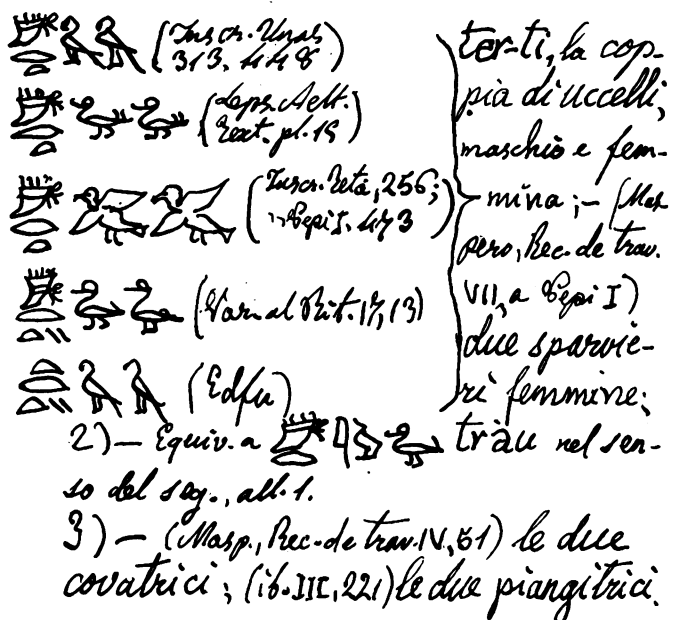 (Inscr. Unas 313. 448)
(Leps. Aelt. Text. pl. 15)
(Inscr. Teta, 256; " Pepi I. 473)
(Var. al Rit. 17, 13)
(Edfu)
ter-ti, la cop-
pia di uccelli,
maschio e fem-
mina; — (Mas
pero, Rec. de trav.
VII, a Pepi I)
due sparvie-
ri femmine;
2) — Equiv. a trau nel sen-
so del seg., all. 1.
3) — (Masp., Rec. de trav. IV, 51) le due
covatrici; (ib. III, 221) le due piangitrici.